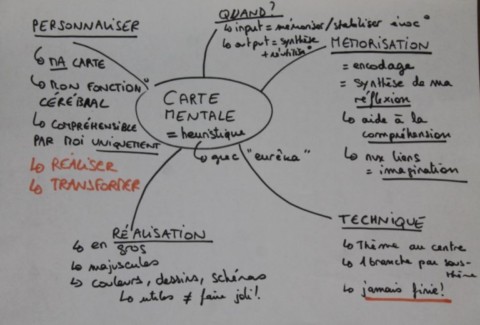 PERSONNALISER
↳ MA CARTE
↳ MON FONCTION°
CÉRÉBRAL
↳ COMPRÉHENSIBLE
PAR MOI UNIQUEMENT
↳ RÉALISER
↳ TRANSFORMER
QUAND?
↳ input = mémoriser / stabiliser
↳ output = synthèse
MÉMORISATION
= encodage
= synthèse de ma
réflexion
↳ aide à la
compréhension
↳ nux liens
= imagination
CARTE
MENTALE
= heuristique
↳ grec "eurêka"
RÉALISATION
↳ en gros
↳ majuscules
↳ couleurs, dessins, schémas
↳ utiles ≠ faire joli!
TECHNIQUE
↳ Thème au centre
↳ 1 branche par sous-
thème
↳ jamais finie!